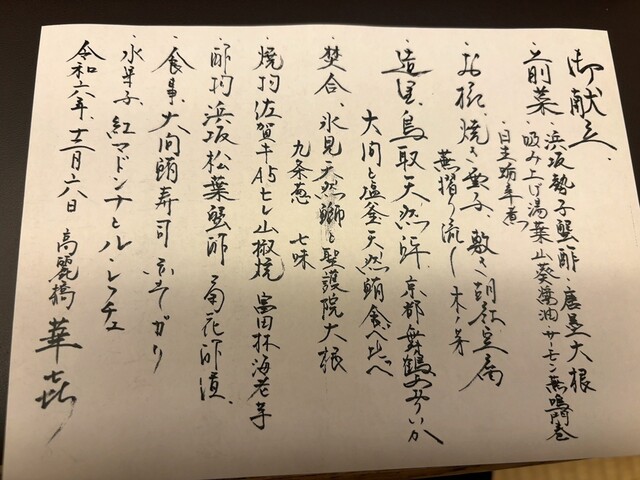 御献立
前菜 浜坂勢子蟹酢・唐墨大根
汲み上げ湯葉山葵醤油 サーモン蕪鳴門巻
お椀、焼き雲子、敷き胡麻豆腐
蕪摺り流し 木の芽
造里、鳥取天然 京都舞鶴あおりいか
大間と塩釜天然鮪食べ比べ
焚合、氷見天然鰤と聖護院大根
九条葱 七味
焼物 佐賀牛A5ヒレ山椒焼 富田林海老芋
酢物 浜坂松葉蟹酢 菊花酢漬
食事、大間鮪寿司 ガリ
水菓子、紅マドンナとル・レクチェ
令和六年、十二月六日 高麗橋 華㐂